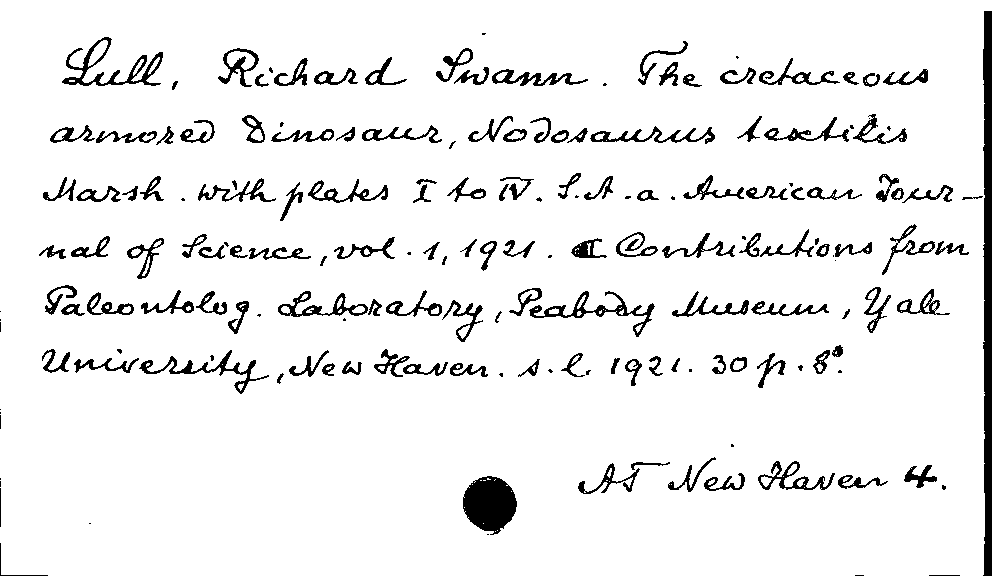 Lull, Richard Swann. The cretaceous
armored Dinosaur, Nodosaurus textilis
Marsh. with plates I to IV. S.A. a. American Jour-
nal of Science, vol. 1, 1921. ❡ Contributions from
Paleontolog. Laboratory, Peabody Museum, Yale
University, New Haven. s.l. 1921. 30 p. 8°.
AT New Haven 4.